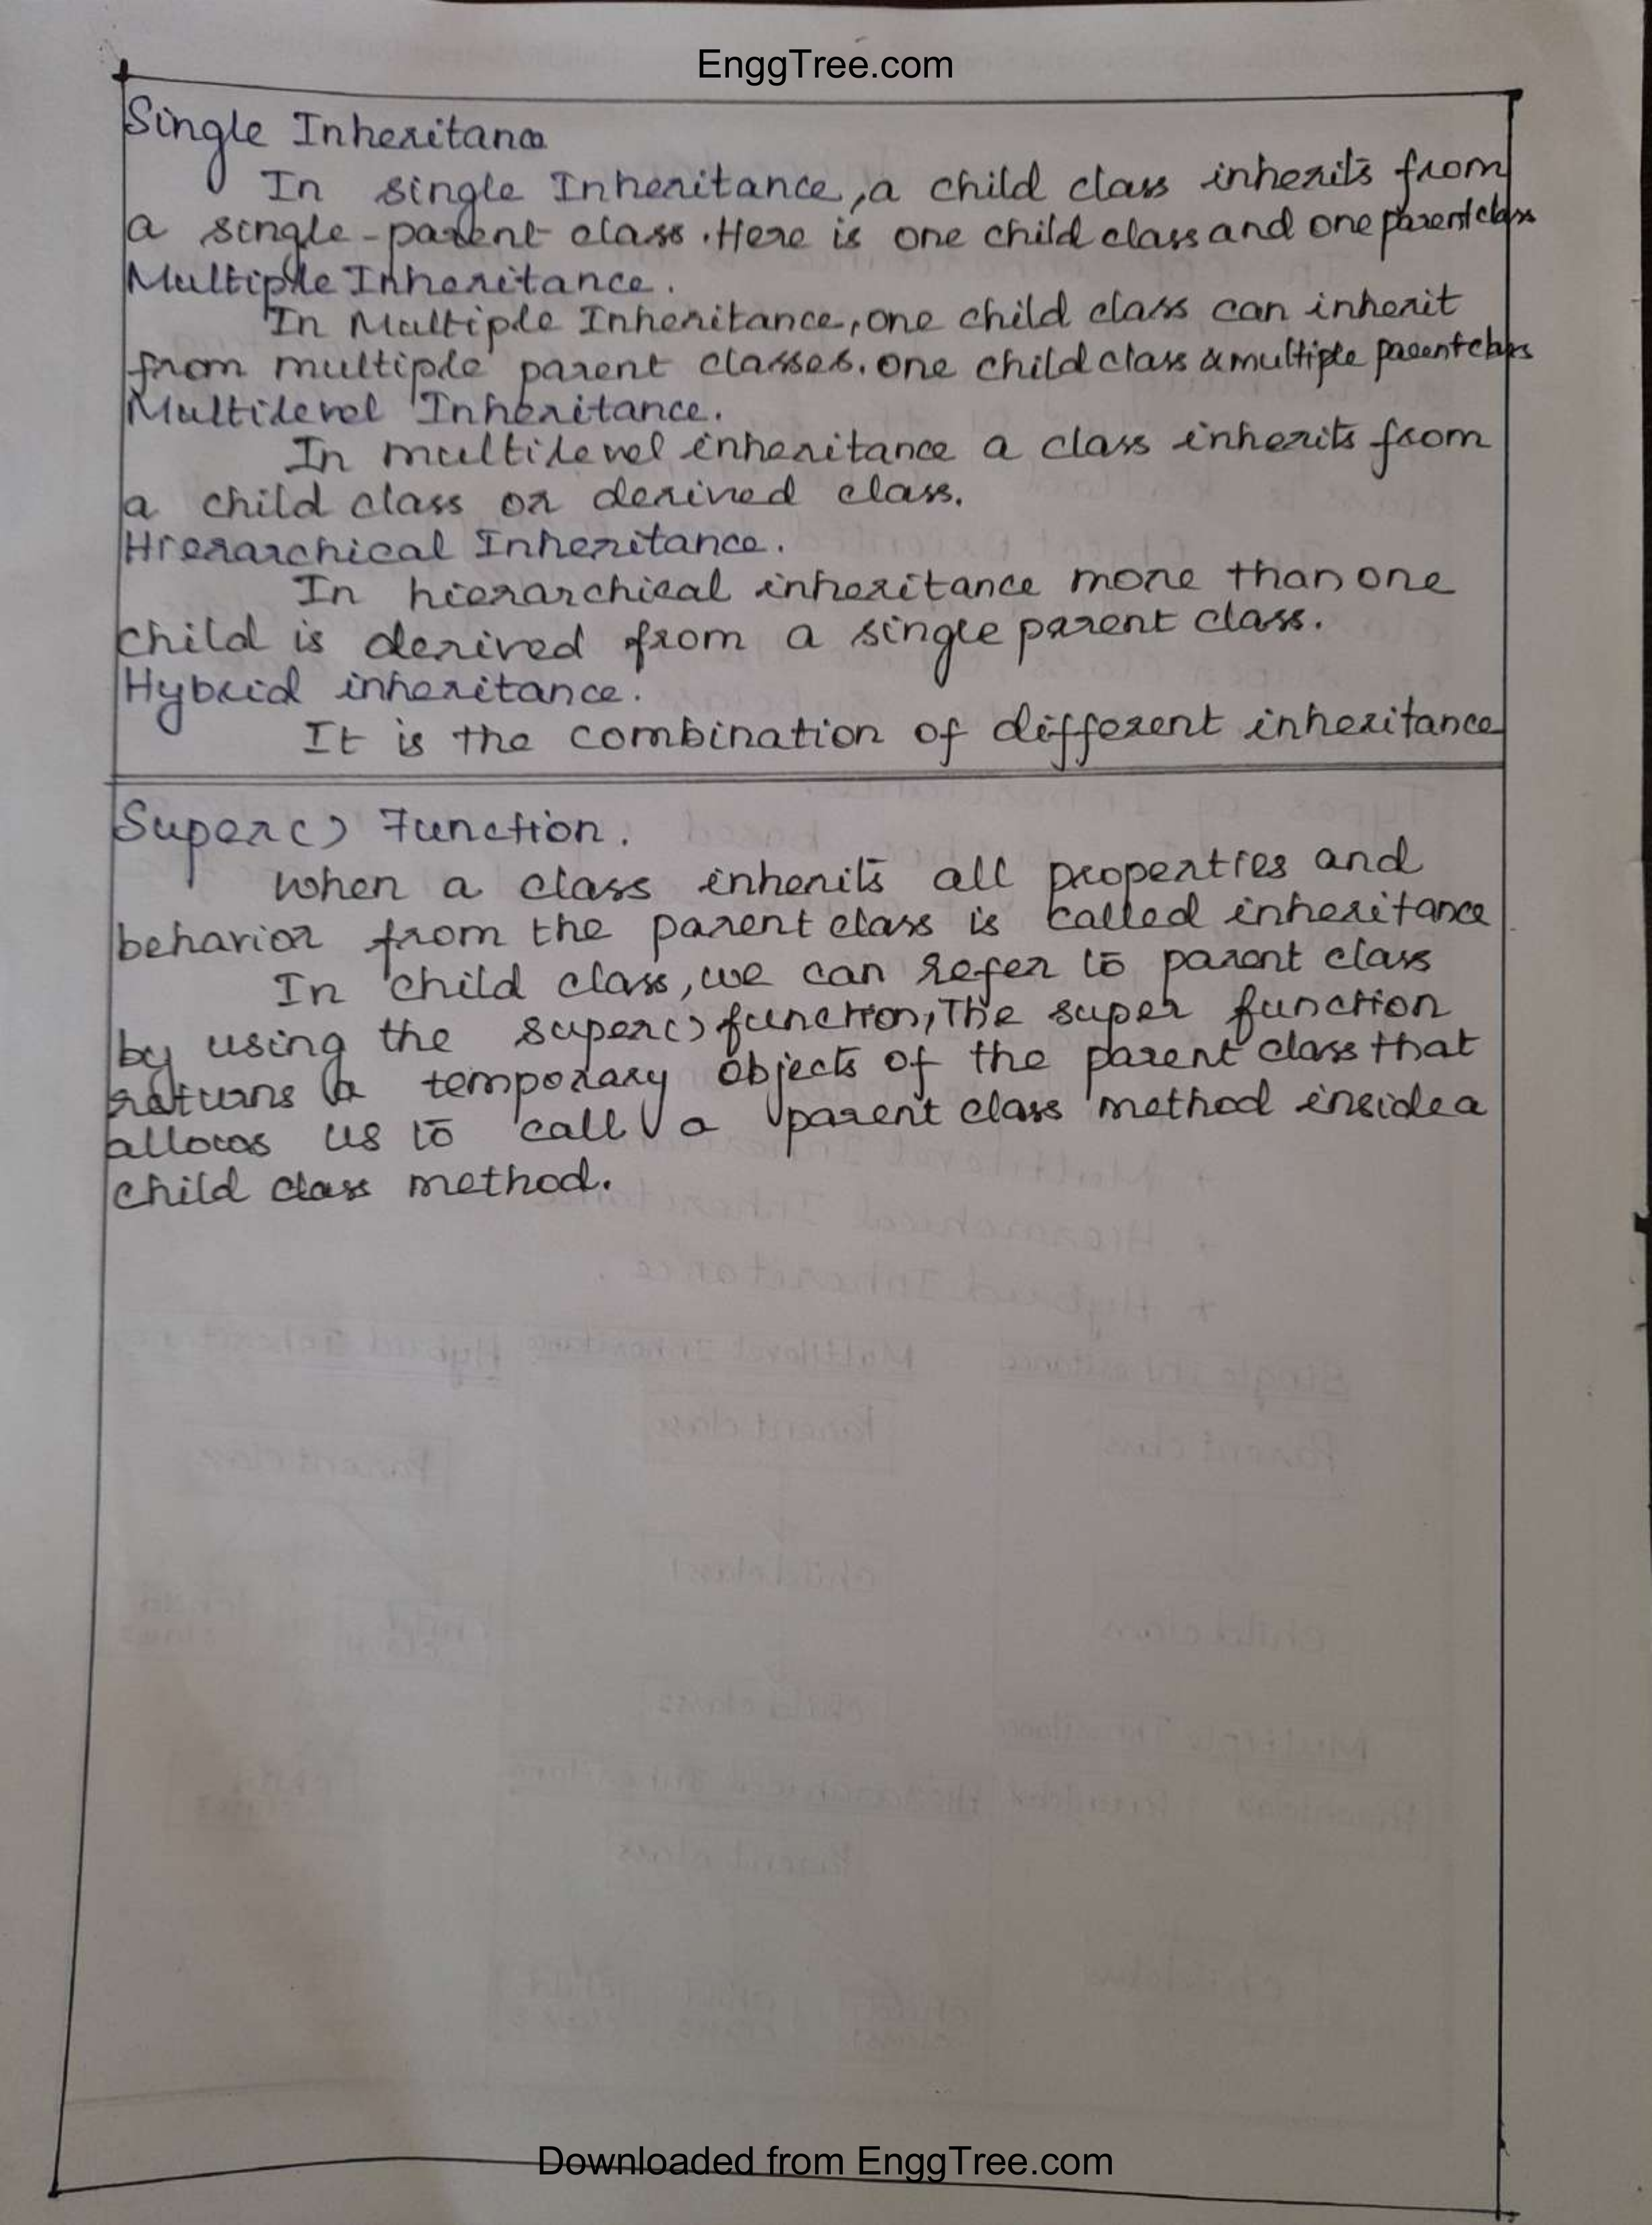 EnggTree.com
Single Inheritance
In single Inheritance, a child class inherits from
a single-parent class. Here is one child class and one parent class
Multiple Inheritance.
In Multiple Inheritance, one child class can inherit
from multiple parent classes. one child class & multiple parent class
Multilevel Inheritance.
In multilevel inheritance a class inherits from
a child class or derived class.
Hierarchical Inheritance.
In hierarchical inheritance more than one
child is derived from a single parent class.
Hybrid inheritance.
It is the combination of different inheritance
Super() Function.
When a class inherits all properties and
behavior from the parent class is called inheritance
In child class, we can refer to parent class
by using the super() function, The super function
returns a temporary objects of the parent class that
allows us to call a parent class method inside a
child class method.
Downloaded from EnggTree.com